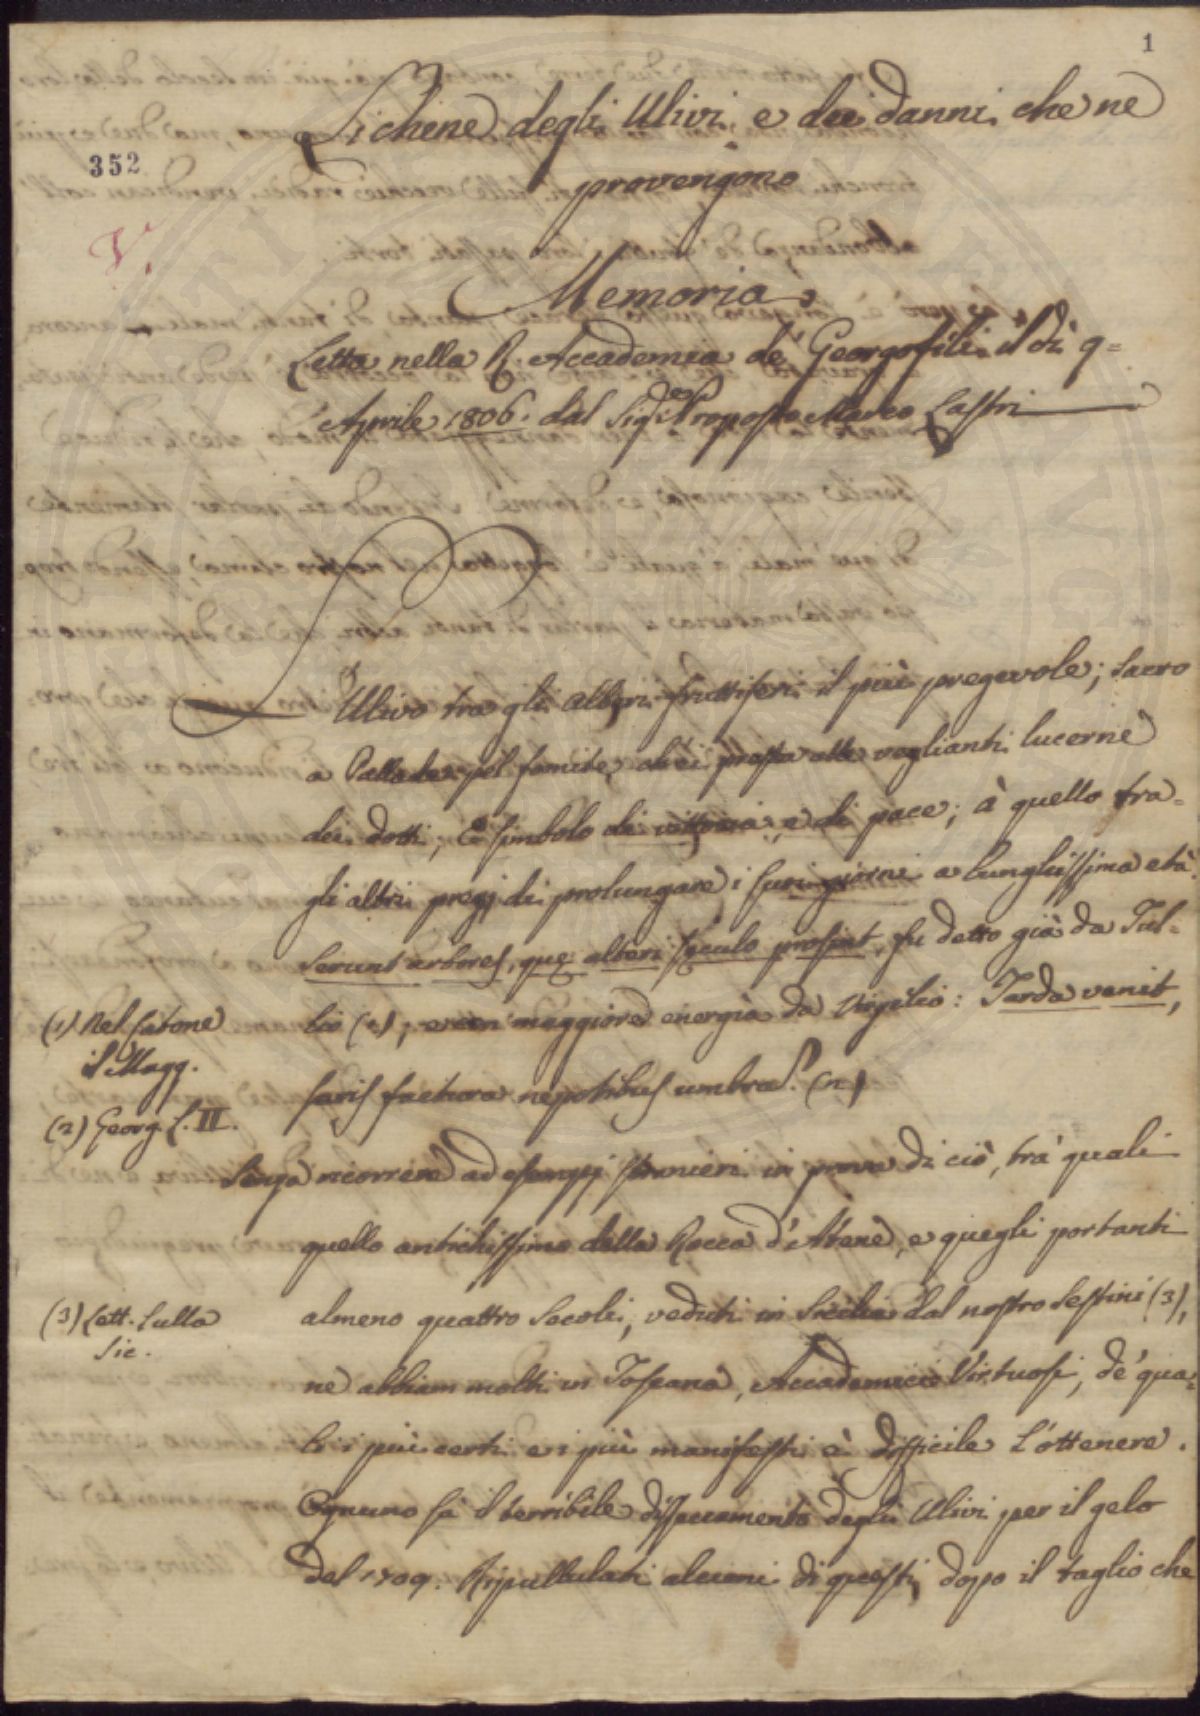 1
352
Lichene degli Ulivi e dei danni che ne
provengono
Memoria
Letta nella R. Accademia de' Georgofili il dì 9
Aprile 1806. dal Sig.re Proposto Marco Lastri
L'Ulivo tra gli alberi fruttiferi il più pregevole; sacro
a Pallade pel fomite, ch'ei presta alle veglianti lucerne
dei dotti; e simbolo di vittoria, e di pace; à quello fra
gli altri pregj di prolungare i suoi giorni a lunghissima età.
Serunt arbores, quę alteri sęculo prosint, fu detto già da Tul=
lio (1), e con maggiore energia da Virgilio: Tarda venit,
(1) Nel Catone
il Magg.
seris factura nepotibus umbra. (2)
(2) Georg. L. III.
Senza ricorrere ad esempj stranieri in prova di ciò, tra' quali
quello antichissimo della Rocca d'Atene, e quegli portanti
almeno quattro Secoli, veduti in Sicilia dal nostro Sestini (3),
(3) Lett. sulla
Sic.
ne abbiam molti in Toscana, Accademici Virtuosi, de' qua=
li i più certi e i più manifesti è difficile l'ottenere.
Ognuno sà il terribile disseccamento degli Ulivi per il gelo
del 1709. Ripullulati alcuni di questi, dopo il taglio che